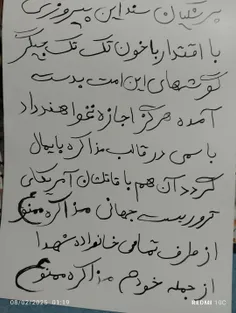 پزشکیان سند این پیروزی
با اقتدار با خون تک تک پیکر
گوشهای این امت بدست
آمده هرگز اجازه نخواهند داد
با سمی در قالب مذاکره پایمال
گردد آن هم با قاتلان آمریکایی
تروریست جهانی مذاکره ممنوع
از طرف تمامی خانواده شهدا
از جمله خودم مذاکره ممنوع
08/02/2025 01:39
REDMI 15C